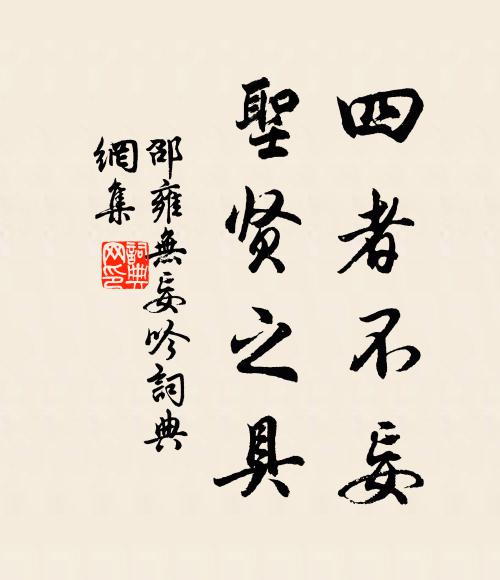 四者不妄
聖贤之具
邵雍無妄吟詞典
網集
詞典
网印